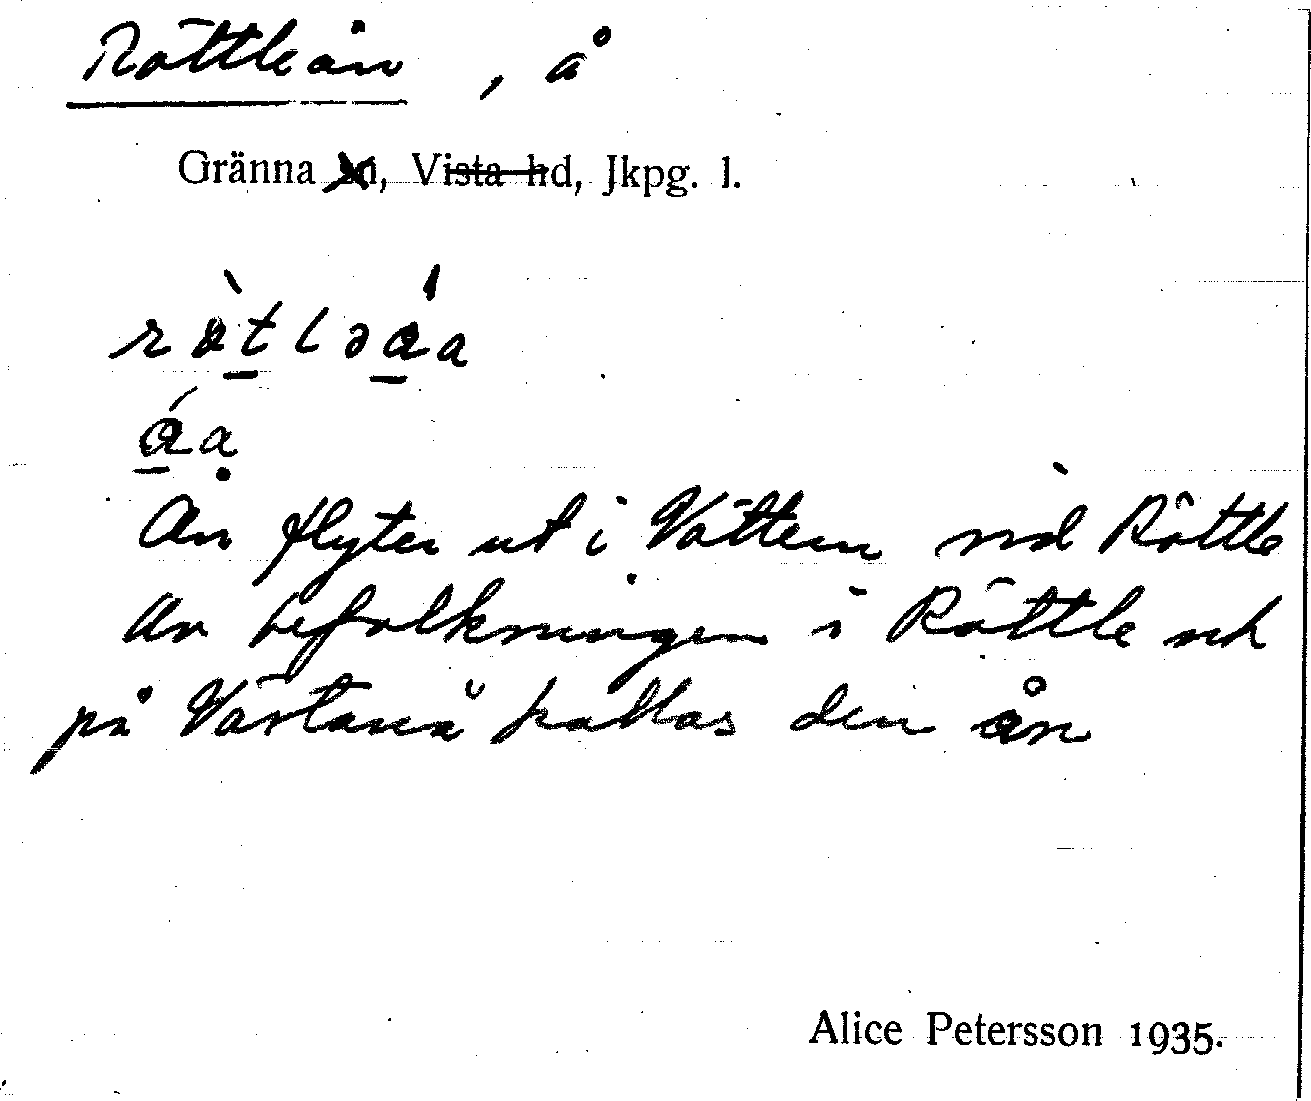 Röttleån, å
Gränna sn, Vista hd, Jkpg. l.
Ån flyter ut i Vättern vid Röttle
Av befolkningen i Röttle och
på Västanå kallas den ån
Alice Petersson 1935.